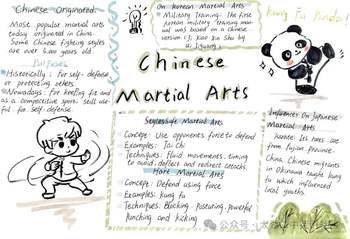 Chinese Originated:
Most popular martial arts
today originated in China.
Some Chinese fighting styles
are over 4,000 years old
Purposes
Historically: For self-defense
or protecting others.
Nowadays: For keeping fit and
as a competitive sport. Still use-
ful for self defense.
On Korean Martial Arts
Military Training: The first
korean military training man-
ual was based on a Chinese
version (Ji Xiao Xin Shu by
Qi Jiguang).
Kung Fu Panda!
Chinese
Martial Arts
Martial Arts
Concept: Use opponents force to defend
Examples: Tai Chi
Techniques: Fluid movements, timing
to avoid, deflect and redirect attacks
Hard Martial Arts
Concept: Defend using force
Examples: Kung fu
Techniques: Blocking, posturing, powerful
punching and kicking
Influences On Japanese
Martial Arts
Karate: Its roots are
from Fujian province,
China. Chinese migrants
in Okinawa taught kung
fu which influenced
local youths.
公众号